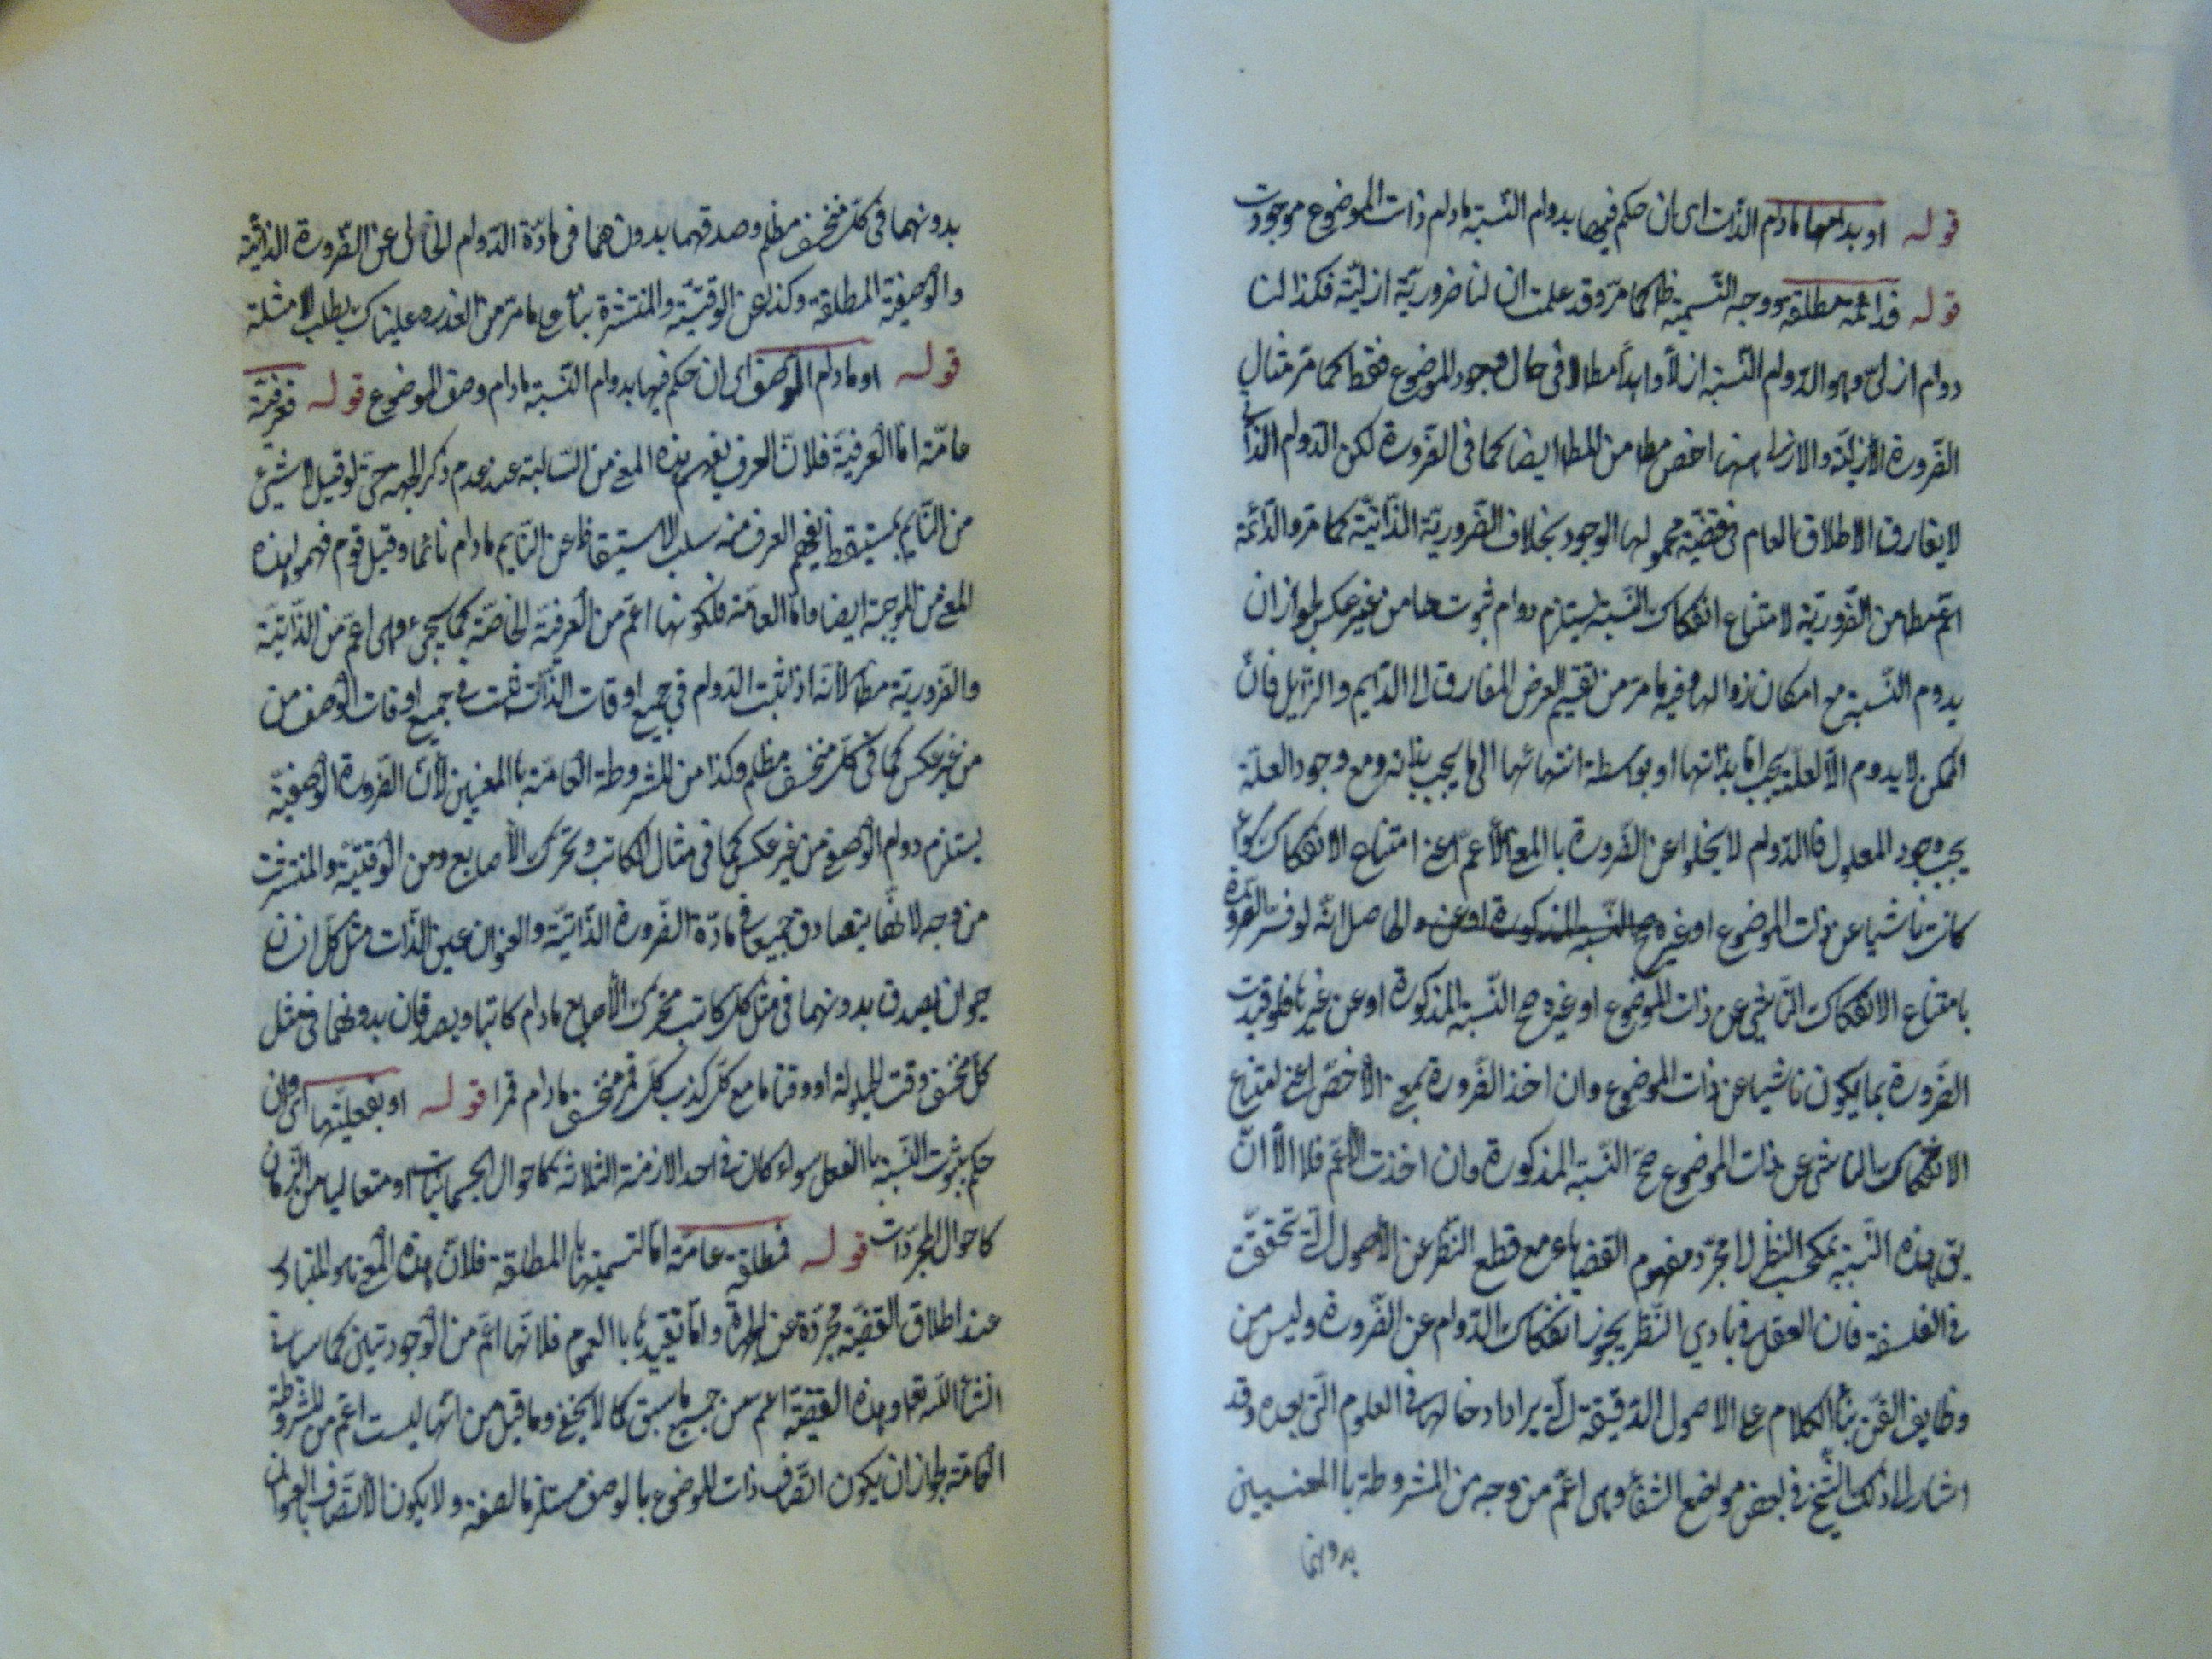 قوله او بدوامها مادام الذّات اى ان حكم فيها بدوام النّسبة مادام ذات الموضوع موجودت
قوله فدائمة مطلقة ووجه التّسمية ظ كما مرّ وقد علمت ان لنا ضروريّة ازليّة فكذا لنا
دوام ازلىّ وهو الدّوام النّسبة ازلاً وابداً مطا لا فى حال وجود الموضوع فقط كما مرّ مثال
الضّرورة الأزليّة والازلى منها اخص مطا من المطا ايضا كما فى الضّرورة لكن الدّوام الذّاتى
لا يفارق الاطلاق العام فى قضيّة محمولها الوجود بخلاف الضّروريّة الذّاتيّة كما مرّ والدّائمة
اعم مطا من الضّروريّة لامتناع انفكاك النّسبة يستلزم دوام ثبوتها من غير عكس لجواز ان
يدوم النّسبة مع امكان زوالها وفيه ما مرّ من تقسيم العرض المفارق الى الدّايم والزّايل فانّ
الممكن لا يدوم الاّ لعلّة يجب امّا بذاتها او بوسطة انتهائها الى ما يجب بذاته ومع وجود العلّة
يجب وجود المعلول فالدّوام لا يخلوا عن الضّرورة بالمعنى الأعمّ اعنى امتناع الانفكاك سواء
كانت ناشيا عن ذات الموضوع او غيره صح النّسبة المذكورة او عن والحاصل انّه لو فسّر الضّرورة
بامتناع الانفكاك النّاشى عن ذات الموضوع او غيره صح النّسبة المذكورة او عن غيرها فلو قيدت
الضّرورة بما يكون ناشيا عن ذات الموضوع وان اخذ الضّرورة بمعنى الأخصّ اعنى امتناع
الانفكاك النّاشى عن ذات الموضوع صحّ النّسبة المذكورة وان اخذت الأعمّ فلا الاّ انّ
يق هذه النّسبة بحسب النظر لا مجرّد مفهوم القضايا مع قطع النّظر عن الأصول الّتى تحققت
فى الفلسفة فان العقل فى بادي النّظر يجوز انفكاك الدّوام عن الضّرورة وليس من
وظايف الفّن بناء الكلام على الاصول الدّقيقة الّتى يراد ادخالها فى العلوم الّتى بعده وقد
اشار الى ذلك الشّيخ فى بعض مواضع الشفاء وهى اعمّ من وجه من المشروطة بالمعنيين
بدونهما
بدونهما فى كلّ منخسف مظلم وصدقهما بدون هما فى مادّة الدّوام الخالى عن الضّرورة الذاتيّة
والوصفيّة المطلقة وكذا عن الوقتيّة والمنتشرة بناء على ما مرّ من العذر وعليك بطلب الامثلة
قوله او مادام الوصف اى ان حكم فيها بدوام النّسبة مادام وصف الموضوع قوله فعرفيّة
عامّة امّا العرفيّة فلانّ العرف يفهم هذه المعنى من السّالبة عند عدم ذكر الجهة حتى لو قيل لا شىء
من النّايم بمستيقظ يفهم العرف منه سلب الاستيقاظ عن النّايم مادام نائما وقيل قوم فهموا هذه
المعنى من الموجبة ايضا وامّا العامّة فلكونها اعمّ من العرفيّة الخاصّة كما يجىء وهى اعمّ من الذّاتيّة
والضّروريّة مطا لأنّه اذا ثبت الدّوام فى جميع اوقات الذّات ثبت فى جميع اوقات الوصف من
من غير عكس كما فى كلّ منخسف مظلم وكذا من المشروطة العامّة بالمعنيين لأنّ الضّرورة الوصفيّة
يستلزم دوام الوصفى من غير عكس كما فى مثال الكاتب وتحرّك الأصابع ومن الوقتيّة والمنتشرة
من وجه لانّها يتصادق جميعا فى مادّة الضّرورة الذّاتيّة والعنوان عين الذّات مثل كلّ انسان
حيوان يصدق بدونهما فى مثل كلّ كاتب متحرّك الأصابع مادام كاتبا ويصدقان بدونهما فى مثل
كلّ منخسف وقت الحيلولة او وقتا ما مع كذب كلّ قمر منخسف مادام قمرا قوله او بفعليّتها اى وان
حكم بثبوت النّسبة بالفعل سواء كان فى احد الازمنة الثلاثة كاحوال الجسمانيات او متعاليا من الزّمان
كاحوال المجرّدات قوله فمطلقة عامّة امّا تسميتها بالمطلقة فلانّ هذه المعنى هو المتبادر
عند اطلاق القضيّة مجرّدة عن الجهة وامّا تقييدها بالعموم فلانّها اعمّ من الوجوديتين كما سيأتى
انشاء اللّه تعا وهذه القضيّة اعم من جميع ما سبق كما لا يخفى وما قيل من انّها ليست اعمّ من المشروطة
العامّة لجواز ان يكون اتّصاف ذات الموضوع بالوصف مستلزما لصفة ولا يكون الأتّصاف بالعنوان